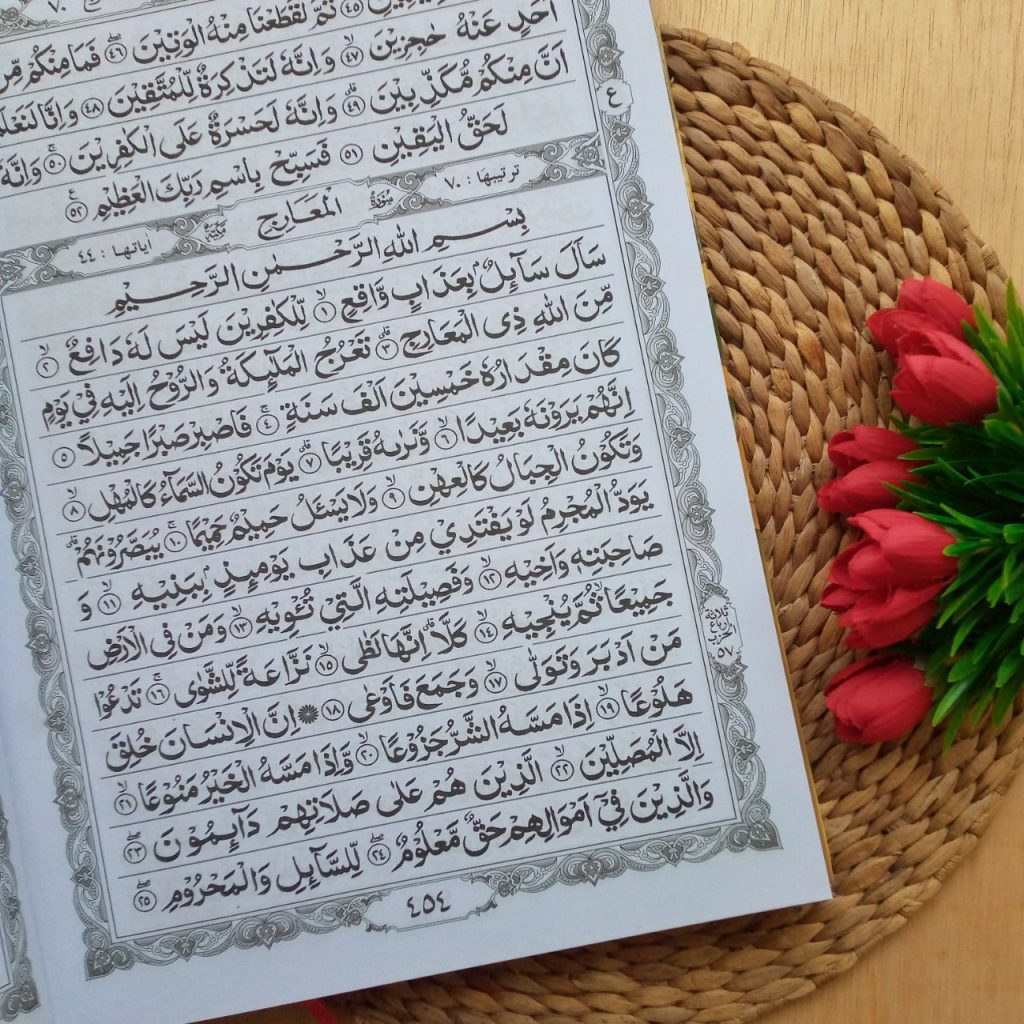 ٧٠
٤٥ ثُمَّ لَقَطَعْنَا مِنْهُ الْوَتِيْنَ ٤٦ فَمَا مِنْكُمْ مِّنْ
اَحَدٍ عَنْهُ حٰجِزِيْنَ ٤٧ وَاِنَّهٗ لَتَذْكِرَةٌ لِّلْمُتَّقِيْنَ ٤٨ وَاِنَّا لَنَعْلَمُ
اَنَّ مِنْكُمْ مُّكَذِّبِيْنَ ٤٩ وَاِنَّهٗ لَحَسْرَةٌ عَلَى الْكٰفِرِيْنَ ٥٠ وَاِنَّهٗ
لَحَقُّ الْيَقِيْنِ ٥١ فَسَبِّحْ بِاسْمِ رَبِّكَ الْعَظِيْمِ ٥٢
ع
ترتيبها : ٧٠ سُوْرَةُ الْمَعَارِجِ مَكِّيَّةٌ اٰياتها : ٤٤
بِسْمِ اللهِ الرَّحْمٰنِ الرَّحِيْمِ
سَاَلَ سَآئِلٌ بِعَذَابٍ وَّاقِعٍ ١ لِّلْكٰفِرِيْنَ لَيْسَ لَهٗ دَافِعٌ ٢
مِّنَ اللهِ ذِى الْمَعَارِجِ ٣ تَعْرُجُ الْمَلٰٓئِكَةُ وَالرُّوْحُ اِلَيْهِ فِيْ يَوْمٍ
كَانَ مِقْدَارُهٗ خَمْسِيْنَ اَلْفَ سَنَةٍ ٤ فَاصْبِرْ صَبْرًا جَمِيْلًا ٥
اِنَّهُمْ يَرَوْنَهٗ بَعِيْدًا ٦ وَّنَرٰىهُ قَرِيْبًا ٧ يَوْمَ تَكُوْنُ السَّمَآءُ كَالْمُهْلِ ٨
وَتَكُوْنُ الْجِبَالُ كَالْعِهْنِ ٩ وَلَا يَسْئَلُ حَمِيْمٌ حَمِيْمًا ١٠ يُبَصَّرُوْنَهُمْ
يَوَدُّ الْمُجْرِمُ لَوْ يَفْتَدِيْ مِنْ عَذَابِ يَوْمِئِذٍ بِبَنِيْهِ ١١ وَ
صَاحِبَتِهٖ وَاَخِيْهِ ١٢ وَفَصِيْلَتِهِ الَّتِيْ تُئْوِيْهِ ١٣ وَمَنْ فِى الْاَرْضِ
جَمِيْعًا ثُمَّ يُنْجِيْهِ ١٤ كَلَّا اِنَّهَا لَظٰى ١٥ نَزَّاعَةً لِّلشَّوٰى ١٦ تَدْعُوْا
مَنْ اَدْبَرَ وَتَوَلّٰى ١٧ وَجَمَعَ فَاَوْعٰى ١٨ اِنَّ الْاِنْسَانَ خُلِقَ
هَلُوْعًا ١٩ اِذَا مَسَّهُ الشَّرُّ جَزُوْعًا ٢٠ وَّاِذَا مَسَّهُ الْخَيْرُ مَنُوْعًا ٢١
اِلَّا الْمُصَلِّيْنَ ٢٢ الَّذِيْنَ هُمْ عَلٰى صَلَاتِهِمْ دَآئِمُوْنَ ٢٣
وَالَّذِيْنَ فِيْٓ اَمْوَالِهِمْ حَقٌّ مَّعْلُوْمٌ ٢٤ لِّلسَّآئِلِ وَالْمَحْرُوْمِ ٢٥
ثلاثة
ارباع
الحزب
٥٧
٤٥٤